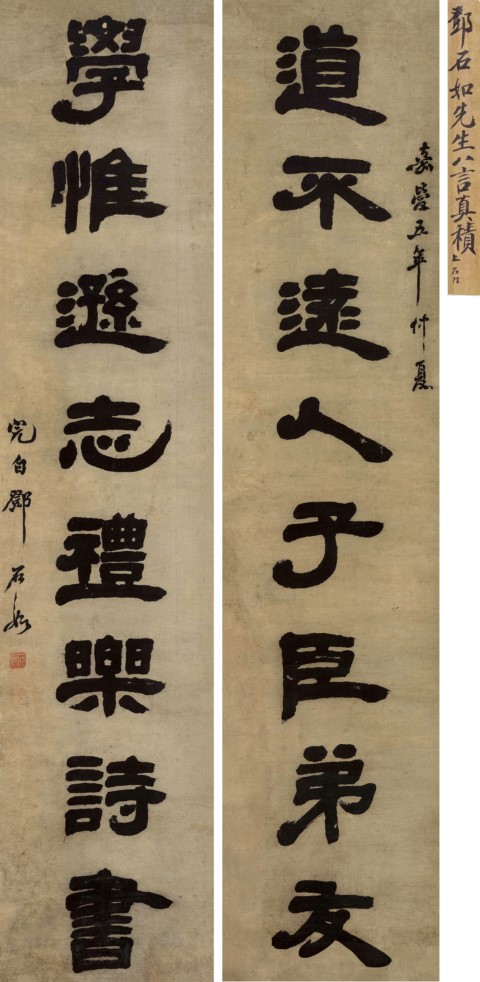 鄧石如先生八言真積
嘉慶五年仲夏
道不遠人子臣弟友
學惟遜志禮樂詩書
完白鄧石如